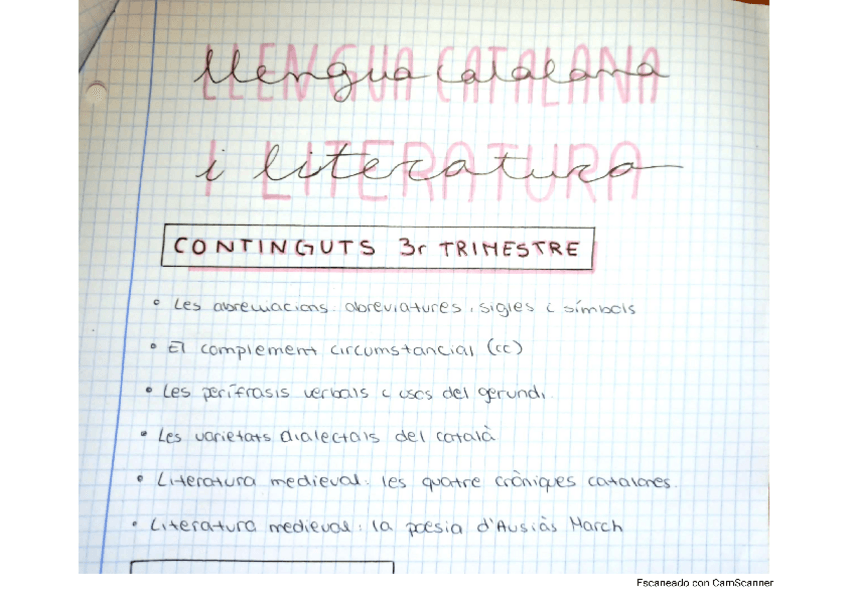 LLENGUA CATALANA
llengua catalana
i LITERATURA
i literatura
CONTINGUTS 3r TRIMESTRE
• Les abreviacions: abreviatures, sigles i símbols
• El complement circumstancial (CC)
• Les perífrasis verbals i usos del gerundi.
• Les varietats dialectals del català
• Literatura medieval: les quatre cròniques catalanes.
• Literatura medieval: la poesia d'Ausiàs March
Escaneado con CamScanner